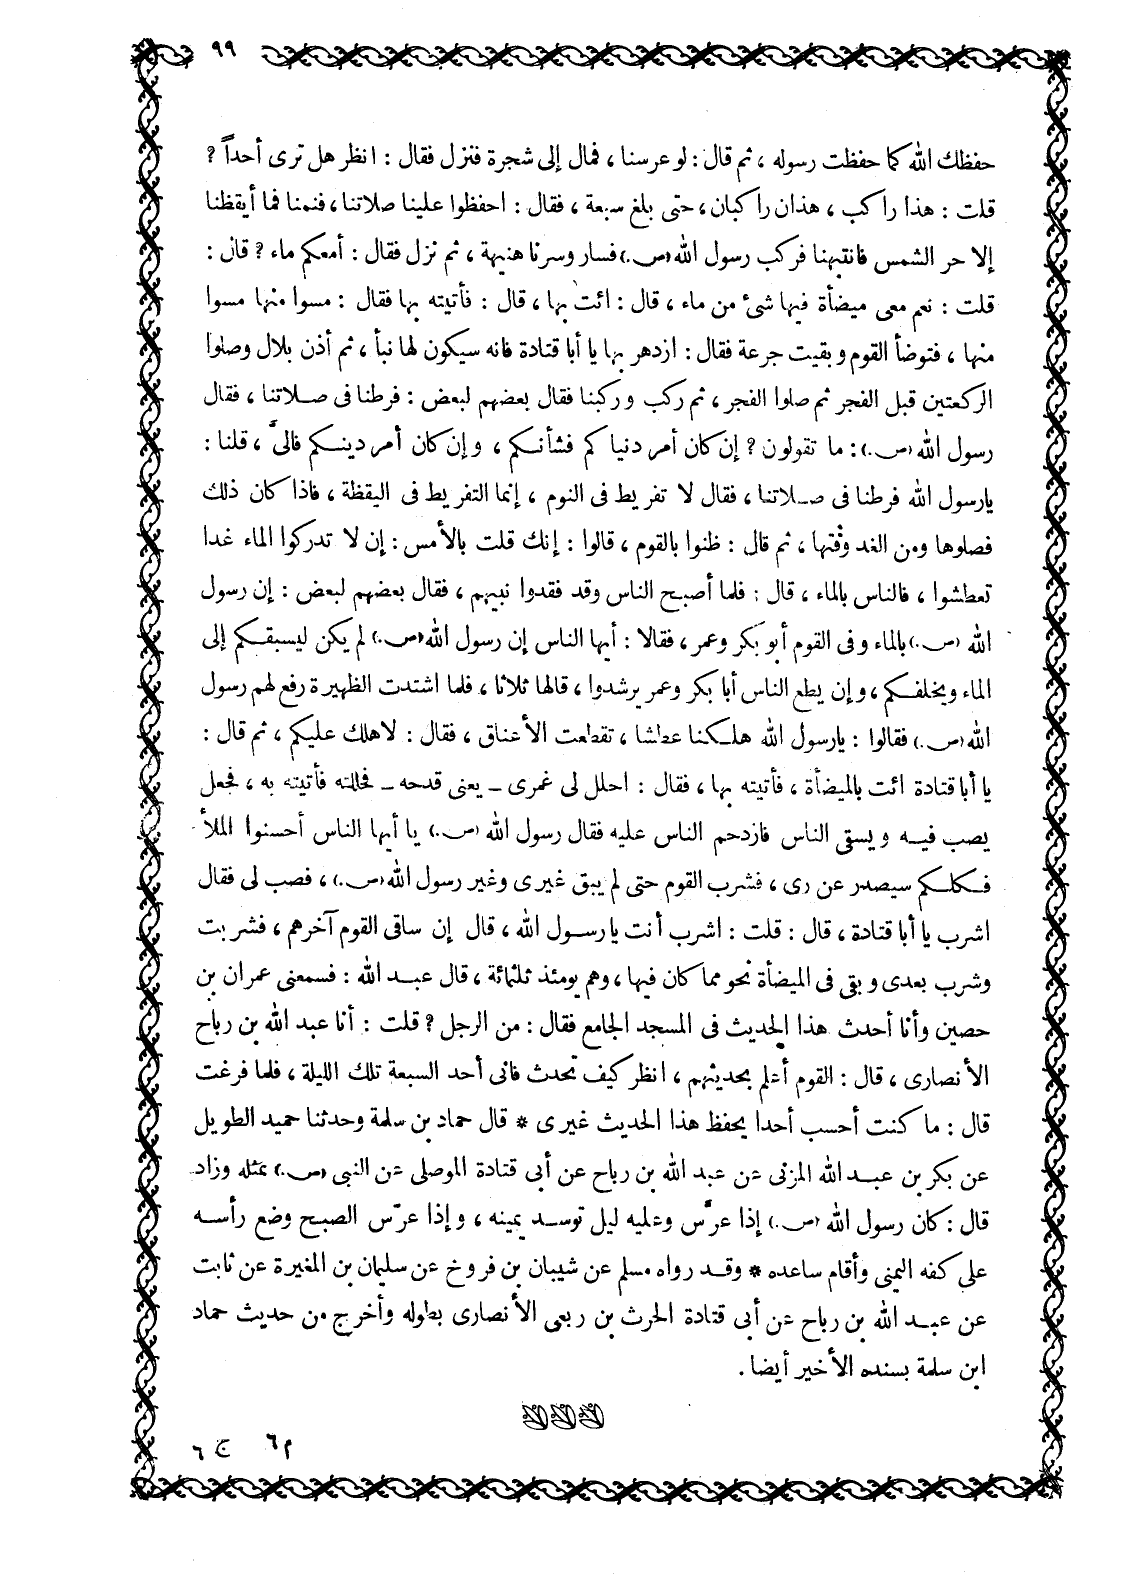 ٩٩
حفظك الله كما حفظت رسوله ، ثم قال : لو عرسنا ، فمال إلى شجرة فنزل فقال : انظر هل ترى أحداً ؟
قلت : هذا راكب ، هذان راكبان ، حتى بلغ سبعة ، فقال : احفظوا علينا صلاتنا ، فنمنا فما أيقظنا
إلا حر الشمس فانتبهنا فركب رسول الله (ص.) فسار وسرنا هنيهة ، ثم نزل فقال : أمعكم ماء ؟ قال :
قلت : نعم معى ميضأة فيها شئ من ماء ، قال : ائت بها ، قال : فأتيته بها فقال : مسوا منها مسوا
منها ، فتوضأ القوم وبقيت جرعة فقال : ازدهر بها يا أبا قتادة فانه سيكون لها نبأ ، ثم أذن بلال وصلوا
الركعتين قبل الفجر ثم صلوا الفجر ، ثم ركب وركبنا فقال بعضهم لبعض : فرطنا فى صلاتنا ، فقال
رسول الله (ص.) : ما تقولون ؟ إن كان أمر دنياكم فشأنكم ، وإن كان أمر دينكم فالىَّ ، قلنا :
يارسول الله فرطنا فى صلاتنا ، فقال لا تفريط فى النوم ، إنما التفريط فى اليقظة ، فاذا كان ذلك
فصلوها ومن الغد وقتها ، ثم قال : ظنوا بالقوم ، قالوا : إنك قلت بالأمس : إن لا تدركوا الماء غدا
تعطشوا ، فالناس بالماء ، قال : فلما أصبح الناس وقد فقدوا نبيهم ، فقال بعضهم لبعض : إن رسول
الله (ص.) بالماء وفى القوم أبو بكر وعمر ، فقالا : أيها الناس إن رسول الله (ص.) لم يكن ليسبقكم إلى
الماء ويخلفكم ، وإن يطع الناس أبا بكر وعمر يرشدوا ، قالها ثلاثا ، فلما اشتدت الظهيرة رفع لهم رسول
الله (ص.) فقالوا : يارسول الله هلكنا عطشا ، تقطعت الأعناق ، فقال : لاهلك عليكم ، ثم قال :
يا أبا قتادة ائت بالميضأة ، فأتيته بها ، فقال : احلل لى غمرى ــ يعنى قدحه ــ فحللته فأتيته به ، فجعل
يصب فيه ويسقى الناس فازدحم الناس عليه فقال رسول الله (ص.) يا أيها الناس أحسنوا الملأ
فكلكم سيصدر عن رى ، فشرب القوم حتى لم يبق غيرى وغير رسول الله (ص.) ، فصب لى فقال
اشرب يا أبا قتادة ، قال : قلت : اشرب أنت يارسول الله ، قال إن ساقى القوم آخرهم ، فشربت
وشرب بعدى وبقى فى الميضأة نحو مما كان فيها ، وهم يومئذ ثلثمائة ، قال عبد الله : فسمعنى عمران بن
حصين وأنا أحدث هذا الحديث فى المسجد الجامع فقال : من الرجل ؟ قلت : أنا عبد الله بن رباح
الأنصارى ، قال : القوم أعلم بحديثهم ، انظر كيف تحدث فانى أحد السبعة تلك الليلة ، فلما فرغت
قال : ما كنت أحسب أحدا يحفظ هذا الحديث غيرى * قال حماد بن سلمة وحدثنا حميد الطويل
عن بكر بن عبد الله المزنى عن عبد الله بن رباح عن أبى قتادة الموصلى عن النبى (ص.) بمثله وزاد
قال : كان رسول الله (ص.) إذا عرَّس وعليه ليل توسد يمينه ، وإذا عرّس الصبح وضع رأسه
على كفه اليمنى وأقام ساعده * وقد رواه مسلم عن شيبان بن فروخ عن سليمان بن المغيرة عن ثابت
عن عبد الله بن رباح عن أبى قتادة الحرث بن ربعى الأنصارى بطوله وأخرج من حديث حماد
ابن سلمة بسنده الأخير أيضا .
م ٦ ج ٦